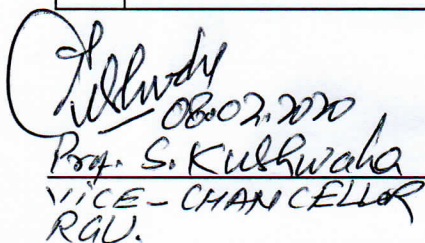 Kushwaha
08.02.2020
Prof. S. Kushwaha
VICE-CHANCELLOR
RGU.